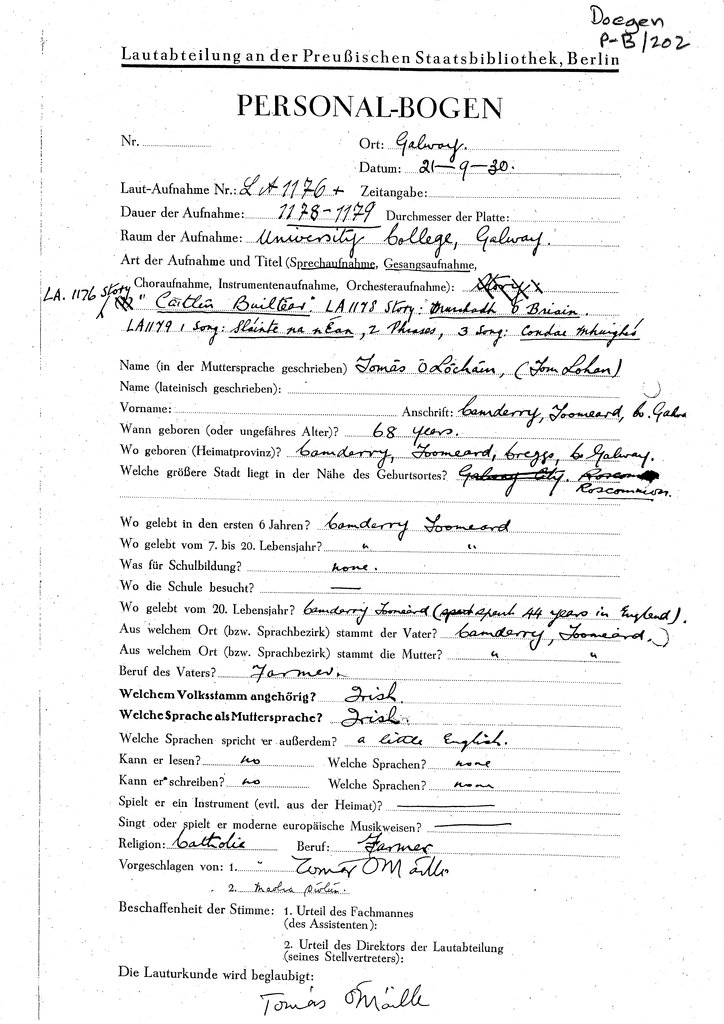 Doegen
P-B/202
Lautabteilung an der Preußischen Staatsbibliothek, Berlin
PERSONAL-BOGEN
Nr.
Ort: Galway.
Datum: 21–9–30.
Laut-Aufnahme Nr.: LA 1176 + Zeitangabe:
Dauer der Aufnahme: 1178-1179 Durchmesser der Platte:
Raum der Aufnahme: University College, Galway.
Art der Aufnahme und Titel (Sprechaufnahme, Gesangsaufnahme,
Choraufnahme, Instrumentenaufnahme, Orchesteraufnahme): Story
LA. 1176 Story "Caitlín Builtéar". LA 1178 Story: Murchadh Ó Briain.
LA1179 1 Song: Sláinte na nÉan, 2 Phrases, 3 Song: Condae Mhuigheó
Name (in der Muttersprache geschrieben) Tomás Ó Lócháin, (Tom Lohan)
Name (lateinisch geschrieben):
Vorname: Anschrift: Camderry, Toomeard, Co. Galwa
Wann geboren (oder ungefähres Alter)? 68 years.
Wo geboren (Heimatprovinz)? Camderry, Toomeard, Creggs, Co Galway.
Welche größere Stadt liegt in der Nähe des Geburtsortes? Galway City. Roscom
Roscommon.
Wo gelebt in den ersten 6 Jahren? Camderry Toomeard
Wo gelebt vom 7. bis 20. Lebensjahr? " "
Was für Schulbildung? none.
Wo die Schule besucht? —
Wo gelebt vom 20. Lebensjahr? Camderry Toomeard (spent 44 years in England).
Aus welchem Ort (bzw. Sprachbezirk) stammt der Vater? Camderry, Toomeard.
Aus welchem Ort (bzw. Sprachbezirk) stammt die Mutter? " "
Beruf des Vaters? Farmer.
Welchem Volksstamm angehörig? Irish.
Welche Sprache als Muttersprache? Irish.
Welche Sprachen spricht er außerdem? a little English.
Kann er lesen? no Welche Sprachen? none
Kann er schreiben? no Welche Sprachen? none
Spielt er ein Instrument (evtl. aus der Heimat)? —
Singt oder spielt er moderne europäische Musikweisen? —
Religion: Catholic Beruf: Farmer
Vorgeschlagen von: 1. " Tomás Ó Máille
2.
Beschaffenheit der Stimme: 1. Urteil des Fachmannes
(des Assistenten):
2. Urteil des Direktors der Lautabteilung
(seines Stellvertreters):
Die Lauturkunde wird beglaubigt:
Tomás Ó Máille